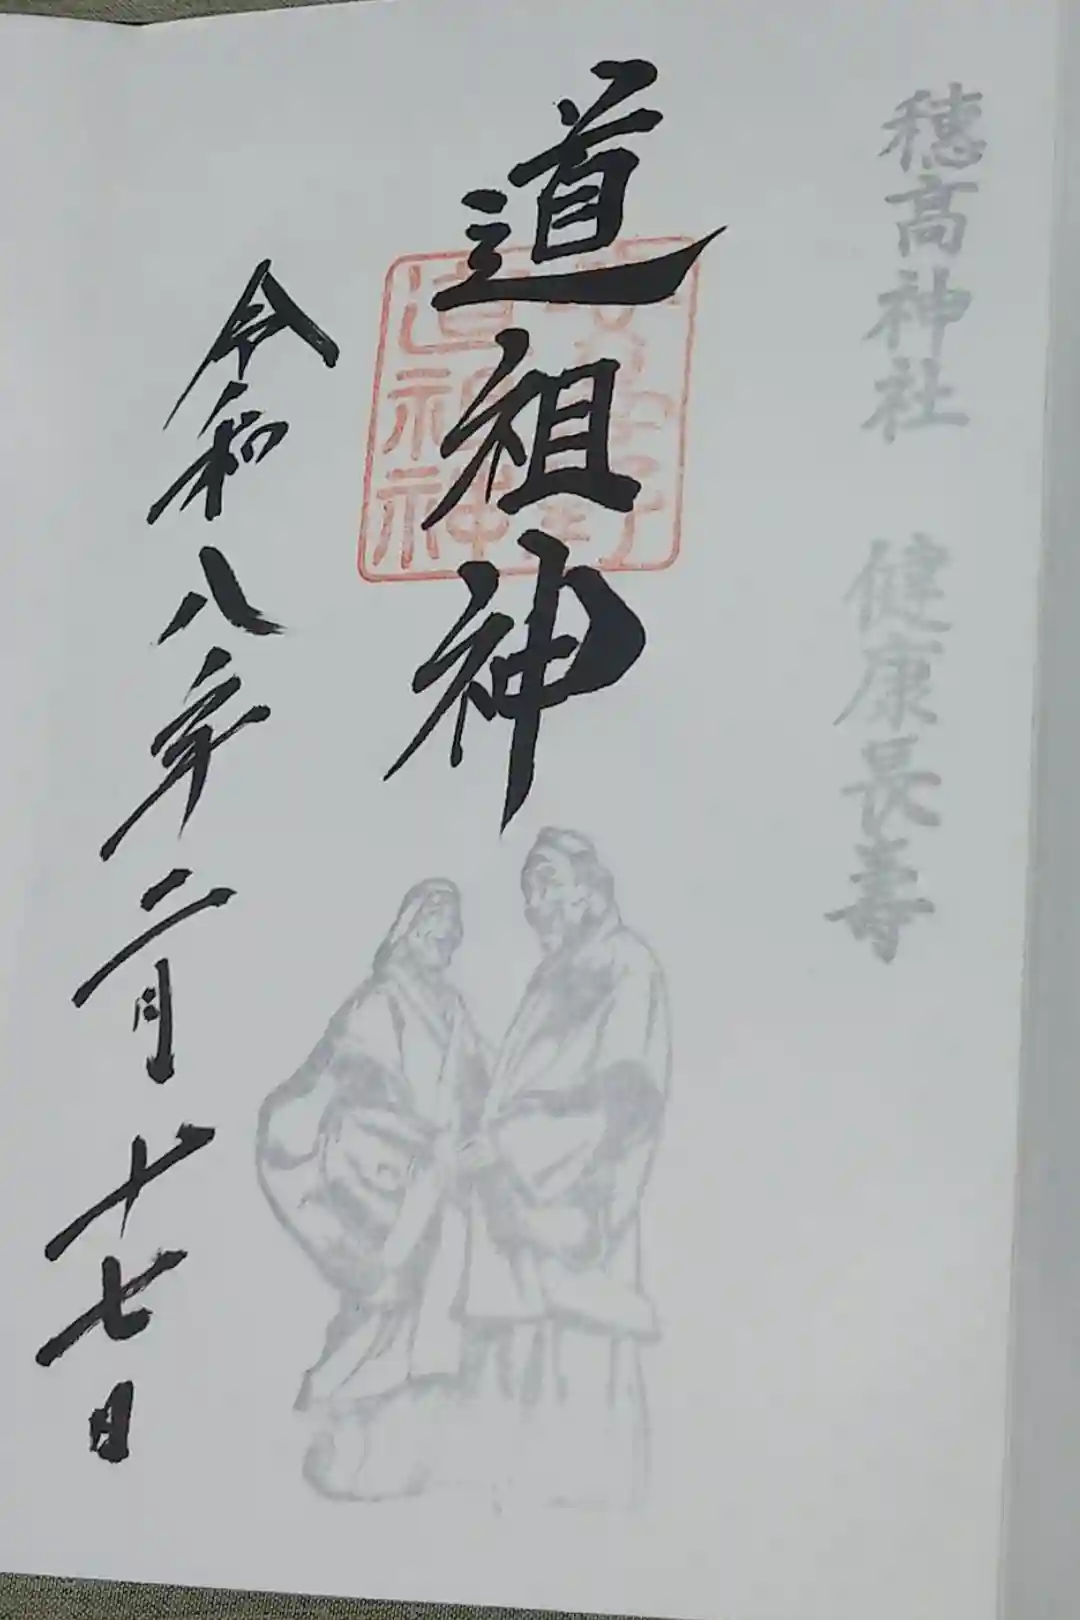 穂高神社　健康長寿
道祖神
安曇野
道祖神
令和八年二月十七日